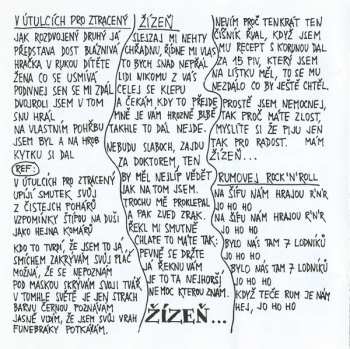 V ÚTULCÍCH PRO ZTRACENÝ
JAK ROZDVOJENÝ DRUHÝ JÁ
PŘEDSTAVA DOST BLÁZNIVÁ
HRAČKA V RUKOU DÍTĚTE
ŽENA CO SE USMÍVÁ
PODIVNEJ SEN SE MI ZDÁL
DVOJROLI JSEM V TOM
SNU HRÁL
NA VLASTNÍM POHŘBU
JSEM BYL A NA HROB
KYTKU SI DAL
REF:
V ÚTULCÍCH PRO ZTRACENÝ
UPÍJÍ SMUTEK SVŮJ
Z ČISTEJCH POHÁRŮ
VZPOMÍNKY ŠTÍPOU NA DUŠI
JAKO HEJNA KOMÁRŮ
KDO TO TVRDÍ, ŽE JSEM TO JÁ,
SMÍCHEM ZAKRÝVÁM SVŮJ PLÁČ
MOŽNÁ, ŽE SE NEPOZNÁM
POD MASKOU SKRÝVÁM SVOJI TVÁŘ
V TOMHLE SVĚTĚ JE JEN STRACH
BARVU ČERNOU POZNÁVÁM
JASNĚ VIDÍM, ŽE JSEM SVŮJ VRAH
FUNEBRÁKY POTKÁVÁM.
ŽÍZEŇ
SLEJZAJ MI NEHTY
CHŘADNU, ŘÍDNE MI VLAS
TO BYCH SNAD NEPŘÁL
LIDI NIKOMU Z VÁS
CELEJ SE KLEPU
A ČEKÁM, KDY TO PŘEJDE
MNĚ JE VÁM HROZNĚ BLBĚ
TAKHLE TO DÁL NEJDE.
NEBUDU SLABOCH, ZAJDU
ZA DOKTOREM, TEN
BY MĚL NEJLÍP VĚDĚT
JAK NA TOM JSEM.
TROCHU MĚ PROKLEPAL
A PAK ZVED ZRAK.
ŘEKL MI SMUTNĚ
CHLAPE TO MÁTE TAK:
PEVNĚ SE DRŽTE
JÁ ŘEKNU VÁM
JE TO TA NEJHORŠÍ
NEMOC KTEROU ZNÁM.
ŽÍZEŇ...
NEVÍM PROČ TENKRÁT TEN
ČÍŠNÍK ŘVAL, KDYŽ JSEM
MU RECEPT S KORUNOU DAL
ZA 15 PIV, KTERÝ JSEM
NA LÍSTKU MĚL, TO SE MU
NEZDÁLO CO BY JEŠTĚ CHTĚL.
PROSTĚ JSEM NEMOCNEJ,
TAK PROČ MÁTE ZLOST,
MYSLÍTE SI ŽE PIJU JEN
TAK PRO RADOST. MÁM
ŽÍZEŇ...
RUMOVEJ ROCK'N'ROLL
NA ŠÍFU NÁM HRAJOU R'N'R
JO HO HO
NA ŠÍFU NÁM HRAJOU R'N'R
JO HO HO
BYLO NÁS TAM 7 LODNÍKŮ
JO HO HO
BYLO NÁS TAM 7 LODNÍKŮ
JO HO HO
KDYŽ TEČE RUM JE NÁM
HEJ, JO HO HO